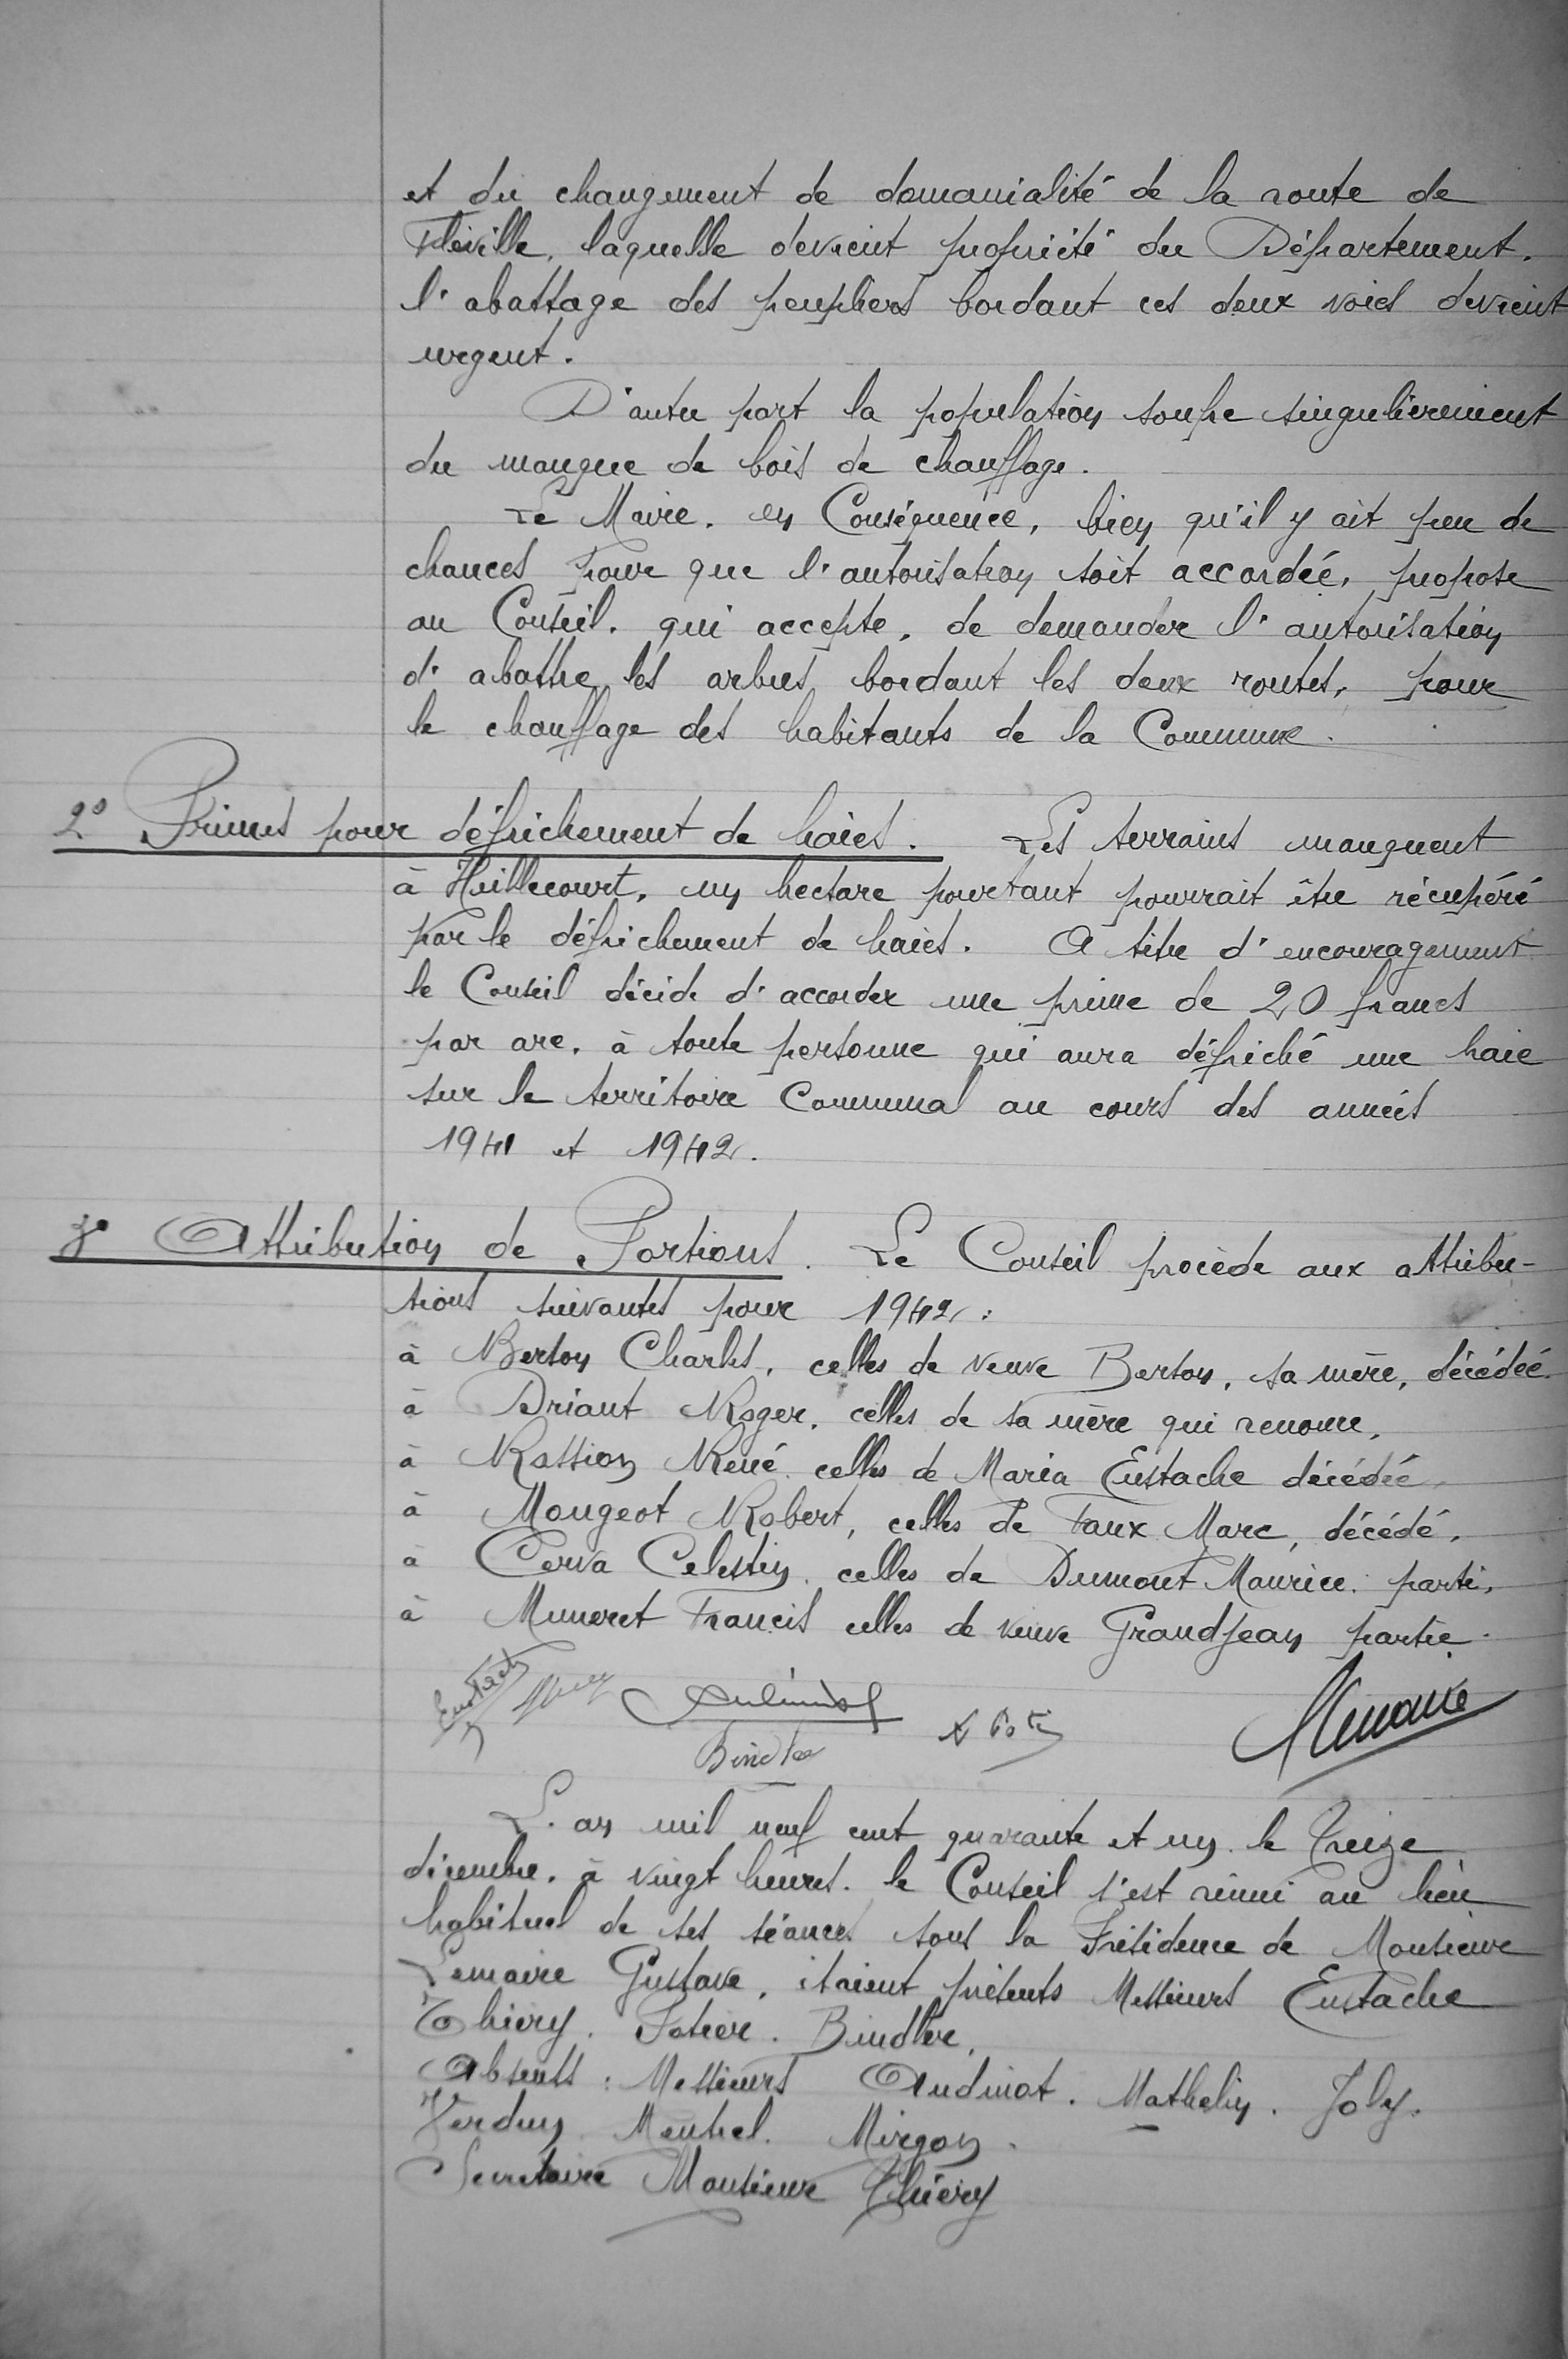 et du changement de domanialité de la route de
Fléville, laquelle devient propriété du Département.
l'abattage des peupliers bordant ces deux voies devient
urgent.
D'autre part la population soufre singulièrement
du manque de bois de chauffage.
Le Maire. en Conséquence, bien qu'il y ait peu de
chances pour que l'autorisation soit accordée, propose
au Conseil. qui accepte, de demander l'autorisation
d'abattre les arbres bordant les deux routes, pour
le chauffage des habitants de la Commune.
2° Primes pour défrichement de haies. Les terrains manquent
à Heillecourt, un hectare pourtant pourrait être récupéré
par le défrichement de haies. A titre d'encouragement
le Conseil décide d'accorder une prime de 20 francs
par are, à toute personne qui aura défriché une haie
sur le territoire Communal au cours des années
1941 et 1942.
3° Attribution de Portions. Le Conseil procède aux attribu-
tions suivantes pour 1942 :
à Berson Charles, celles de veuve Berson, sa mère, décédée.
à Driant Roger, celles de sa mère qui renonce,
à Rassion René celles de Maria Eustache décédée,
à Mougeot Robert, celles de Faux Marc, décédé,
à Cerva Celestin, celles de Dumont Maurice. parti,
à Muneret Francis celles de veuve Grandjean partie.
Eustache
Bindler
Lemaire
L'an mil neuf cent quarante et un le Treize
décembre, à vingt heures. le Conseil s'est réuni au lieu
habituel de ses séances sous la Présidence de Monsieur
Lemaire Gustave, étaient présents Messieurs Eustache
Thiéry. Potier. Bindler,
Absents : Messieurs Audinot. Mathelin. Joly.
Verdun. Mentrel. Mirgon.
Secretaire Monsieur Thiéry